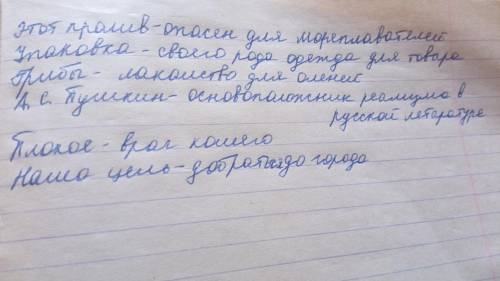 Этот пролив-опасен для мореплавателей
Упаковка - своего рода одежда для товара
Грибы - лакомство для оленей
А. С. Пушкин - основоположник реализма в
русской летературе
Плохое - враг хошего
Наша цель - добраться до города